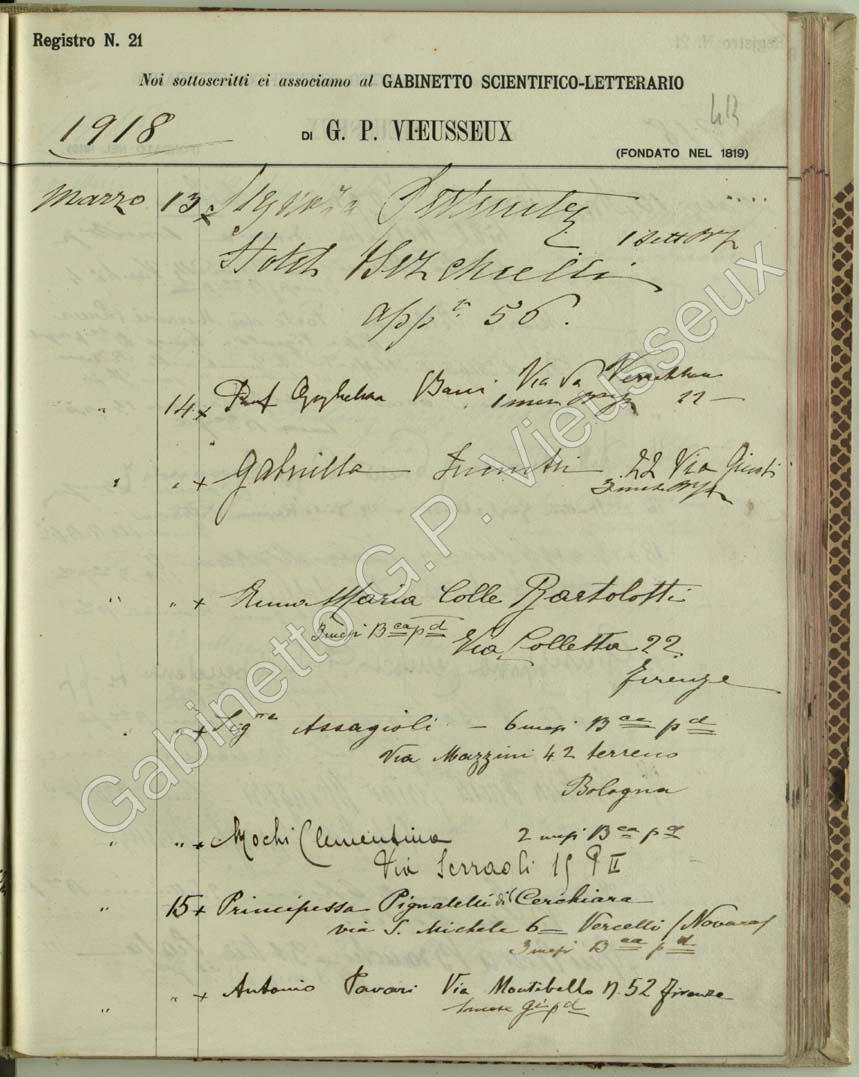 Registro N. 21
Noi sottoscritti ci associamo al GABINETTO SCIENTIFICO-LETTERARIO
1918 DI G. P. VIEUSSEUX
(FONDATO NEL 1819)
Marzo 13 x Signora
Hotel
app 56.
" 14 x Prof Via da
1 22 —
" " x Gabriella 22 Via Giusti
3 mesi
" " x Emma Maria Colle Bartolotti
3 mesi Bca pd Via Colletta 22
Firenze
" " x Sigra Assagioli — 6 mesi Bca pd
Via Mazzini 42 terreno
Bologna
" " x Mochi Clementina 2 mesi Bca pd
Via Serragli 15 P II
" 15 x Principessa Pignatelli di Cerchiara
via S. Michele 6 — Vercelli (Novara)
3 mesi Bca pd
" " x Antonio Via Montebello N. 52 Firenze
pd
Gabinetto G. P. Vieusseux